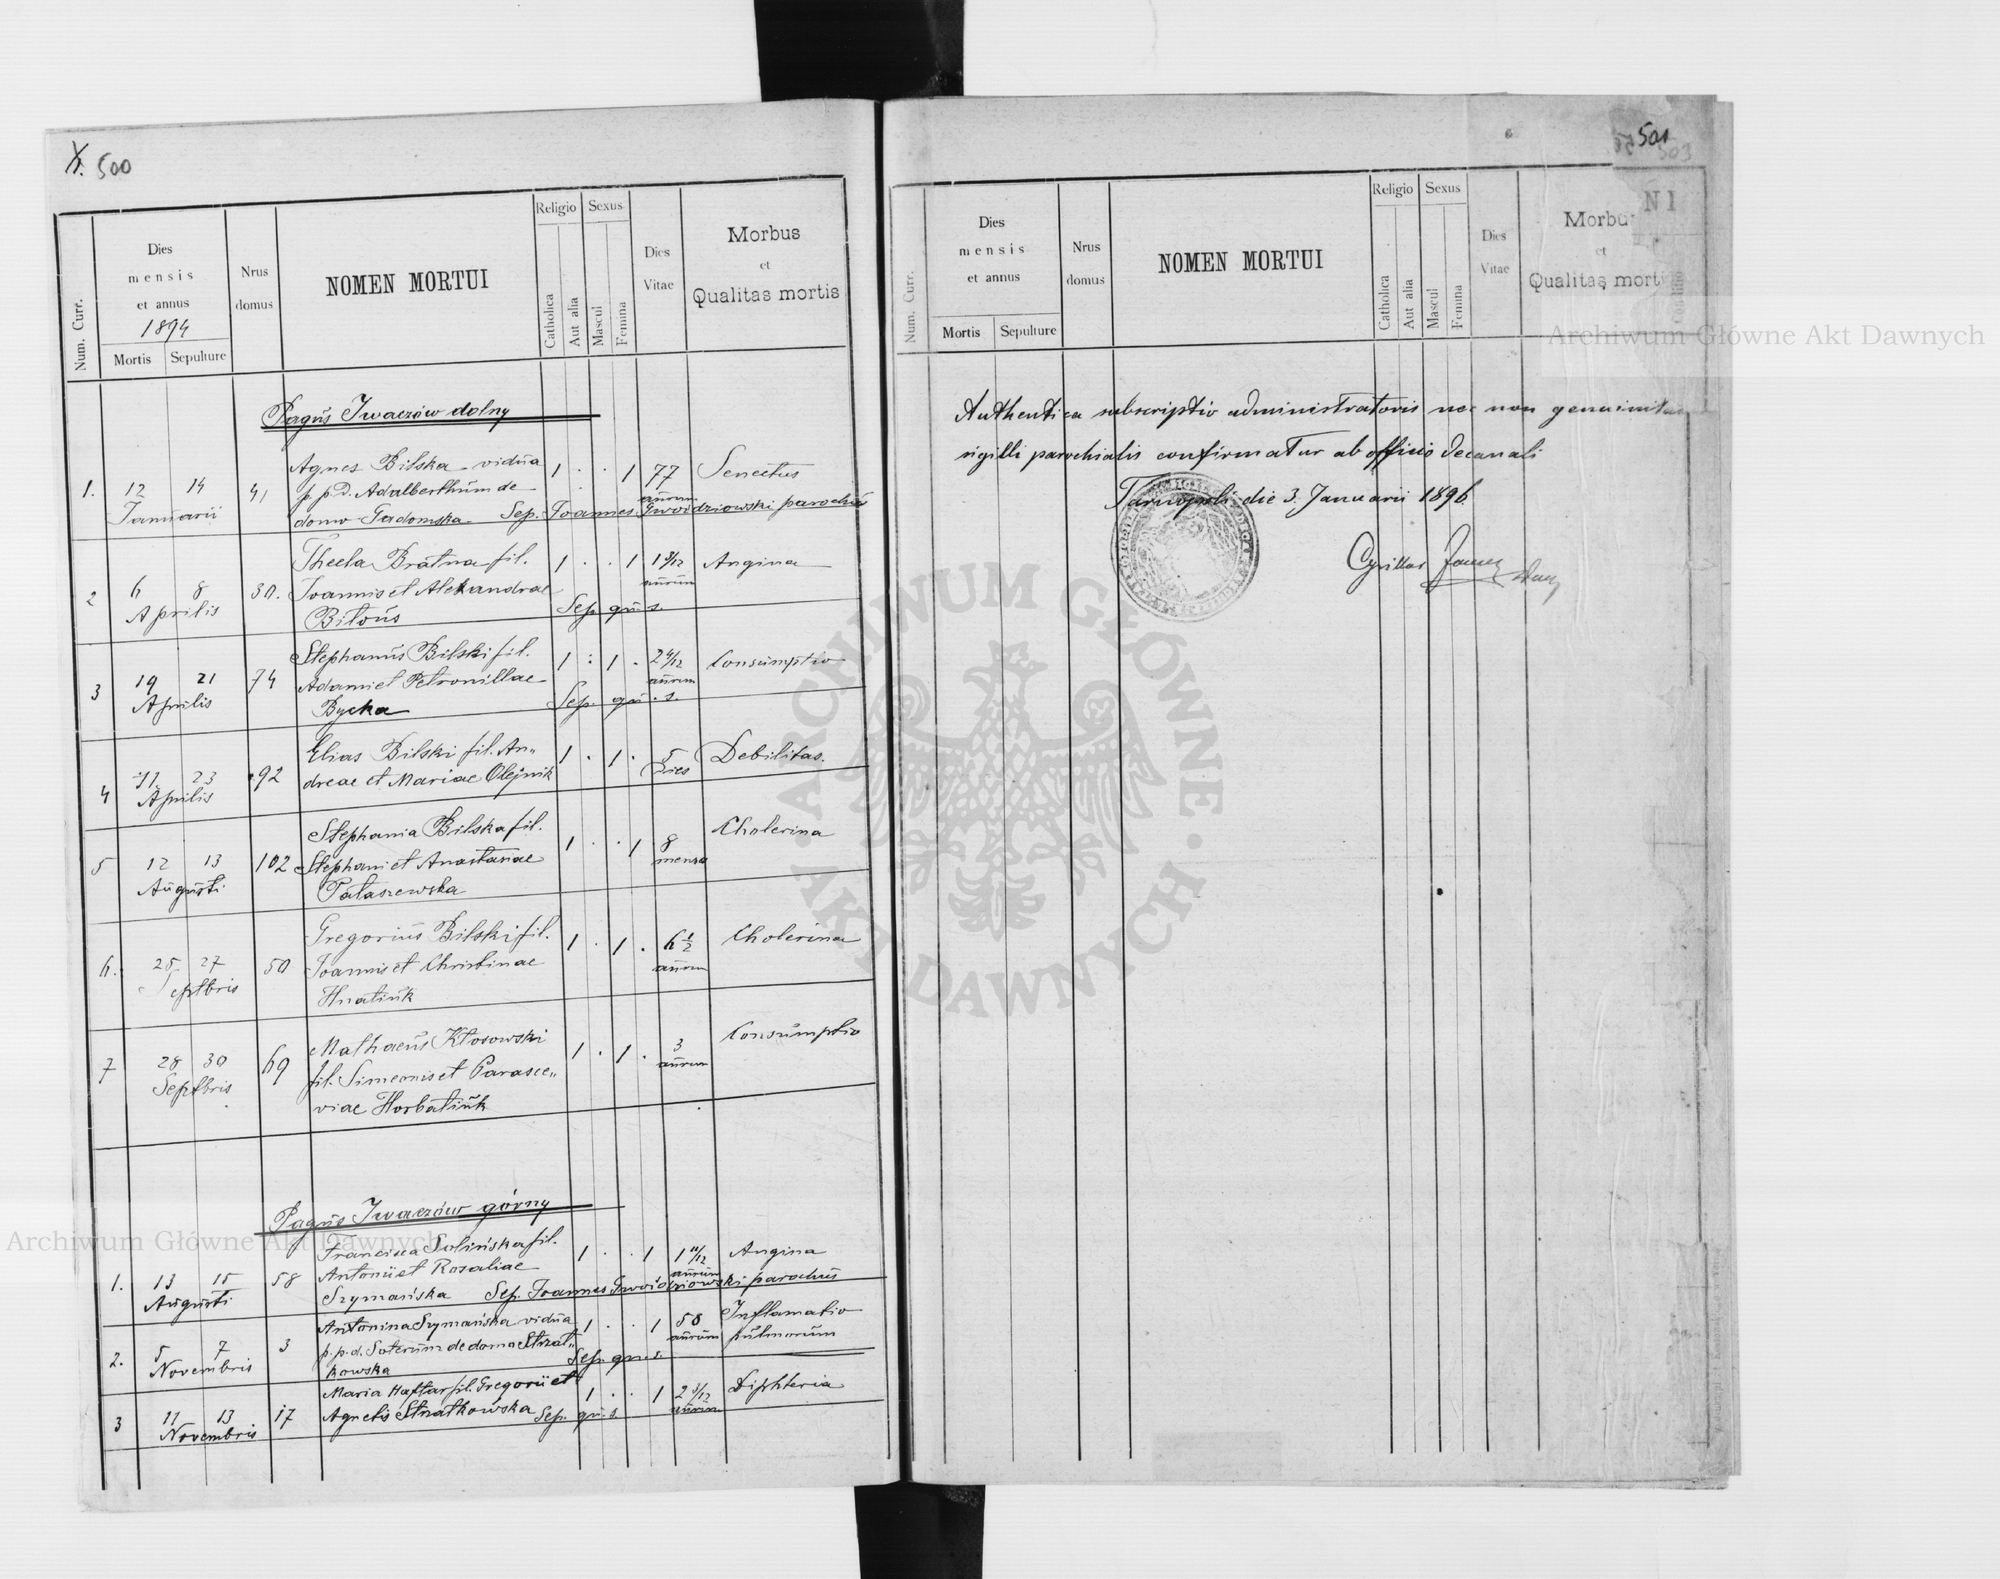 X. 500
Num. Curr.
Dies
mensis
et annus
1894
Mortis Sepulture
Nrus
domus
NOMEN MORTUI
Religio Sexus
Catholica
Aut alia
Mascul
Femina
Dies
Vitae
Morbus
et
Qualitas mortis
Pagus Iwaczów dolny
Agnes Bilska vidua 1 . . 1 77 Senectus
1. 12 14 41 p. p. d. Adalberthum de aurum
Januarii domo Tadomska Sep. Joannes Gwoidziowski parochus
Thecla Bratna fil. 1 . . 1 1 3/12 Angina
2 6 8 30. Joannis et Alexandrae aurum
Aprilis Bilous Sep. qu. s.
Stephanus Bilski fil. 1 : 1 . 2 4/12 Consumptio
3 19 21 74 Adami et Petronillae aurum
Aprilis Bycka Sep. qu. s.
Elias Bilski fil. An„ 1 . 1 . 5 Debilitas.
4 23 92 dreae et Mariae Olejnik Dies
Aprilis
Stephania Bilska fil. 1 . . 1 8 Cholerina
5 12 13 102 Stephani et Anastasiae
Augusti Pataszewska
Gregorius Bilski fil. 1 . 1 . 6 1/2 Cholerina
6. 25 27 50 Joannis et Christinae aurum
Septbris Hnatiuk
Mathaeus Kłosowski 1 . 1 . 3 Consumptio
7 28 30 69 fil. Simeonis et Parasce„ aurum
Septbris viae Horbatiuk
Pagus Iwaczów górny
Francisca Solińska fil. 1 . . 1 1 11/12 Angina
1. 13 15 58 Antonii et Rosaliae aurum
Augusti Szymańska Sep. Joannes Gwoidziowski parochus
Antonina Szymańska vidua 1 . . 1 58 Inflamatio
2. 5 7 3 p. p. d. Soterum de domo Strzał„ aurum pulmorum
Novembris kowska Sep. qu. s.
Maria Haftar fil. Gregorii et 1 . . 1 2 3/12 Diphteria
3 11 13 17 Agnetis Strzałkowska Sep. qu. s. aurum
Novembris
501
503
Num. Curr.
Dies
mensis
et annus
Mortis Sepulture
Nrus
domus
NOMEN MORTUI
Religio Sexus
Catholica
Aut alia
Mascul
Femina
Dies
Vitae
Morbu
et
Qualitas morti
N I
Authentica subscriptio administratoris nec non genuinitas
sigilli parochialis confirmatur ab officio decanali
Tarnopoli die 3. Januarii 1896
Cyrillus
Archiwum Główne Akt Dawnych
Archiwum Główne Akt Dawnych
ARCHIWUM GŁÓWNE · AKT DAWNYCH ·